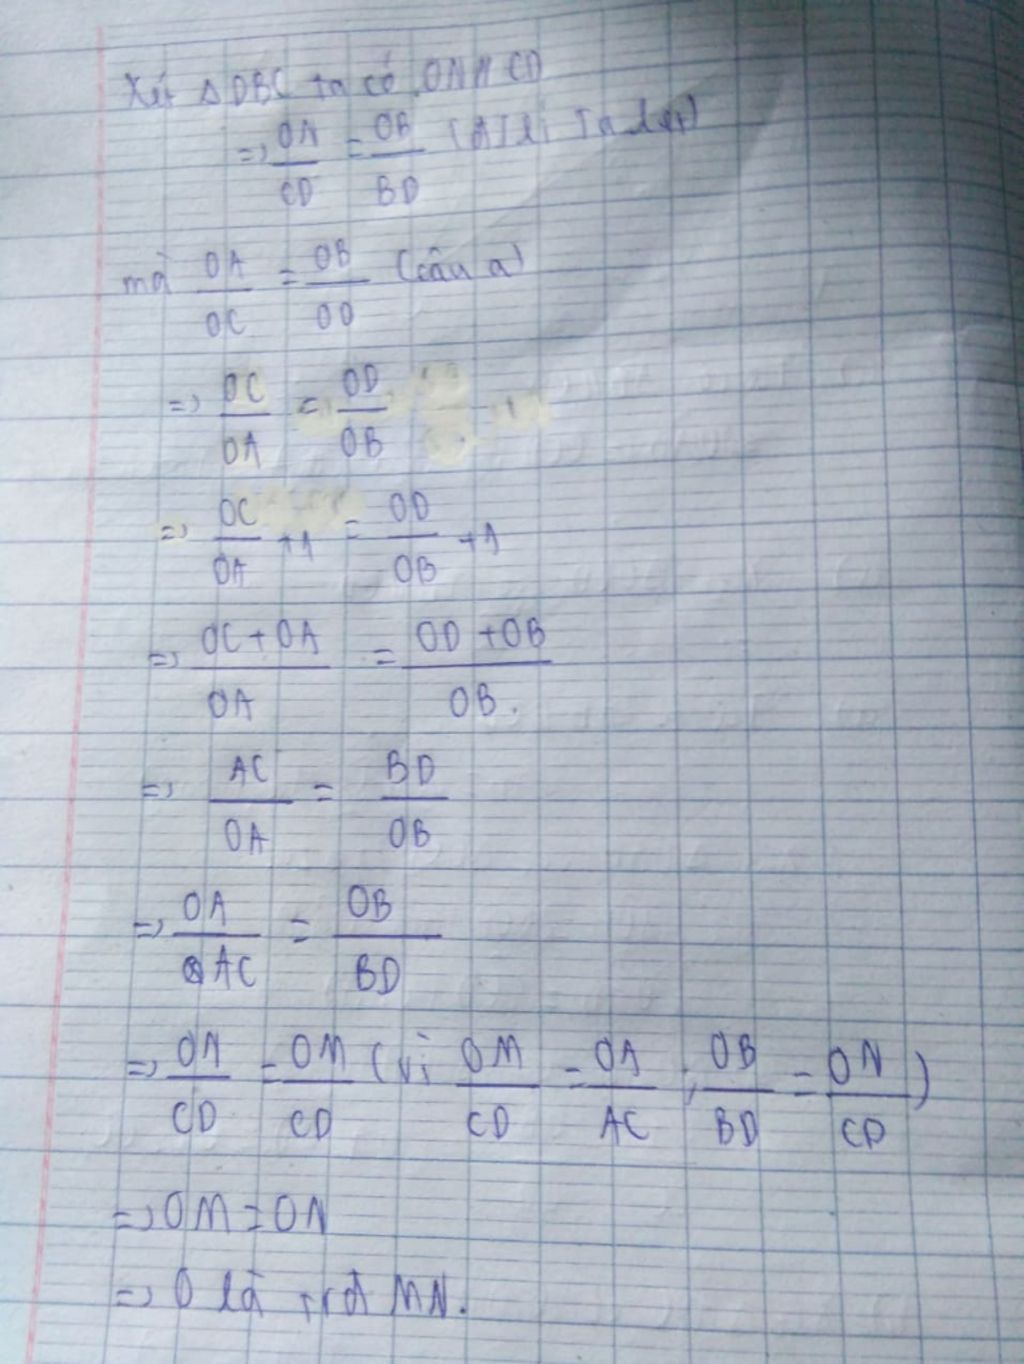 Xét Δ DBC ta có ON // CD
=> ON/CD = OB/BD (ĐL Talet)
mà OA/OC = OB/OD (câu a)
=> OC/OA = OD/OB
=> OC/OA + 1 = OD/OB + 1
=> OC + OA/OA = OD + OB/OB.
=> AC/OA = BD/OB
=> OA/AC = OB/BD
=> ON/CD = OM/CD (vì OM/CD = OA/AC ; OB/BD = ON/CD)
=> OM = ON
=> O là trđ MN.